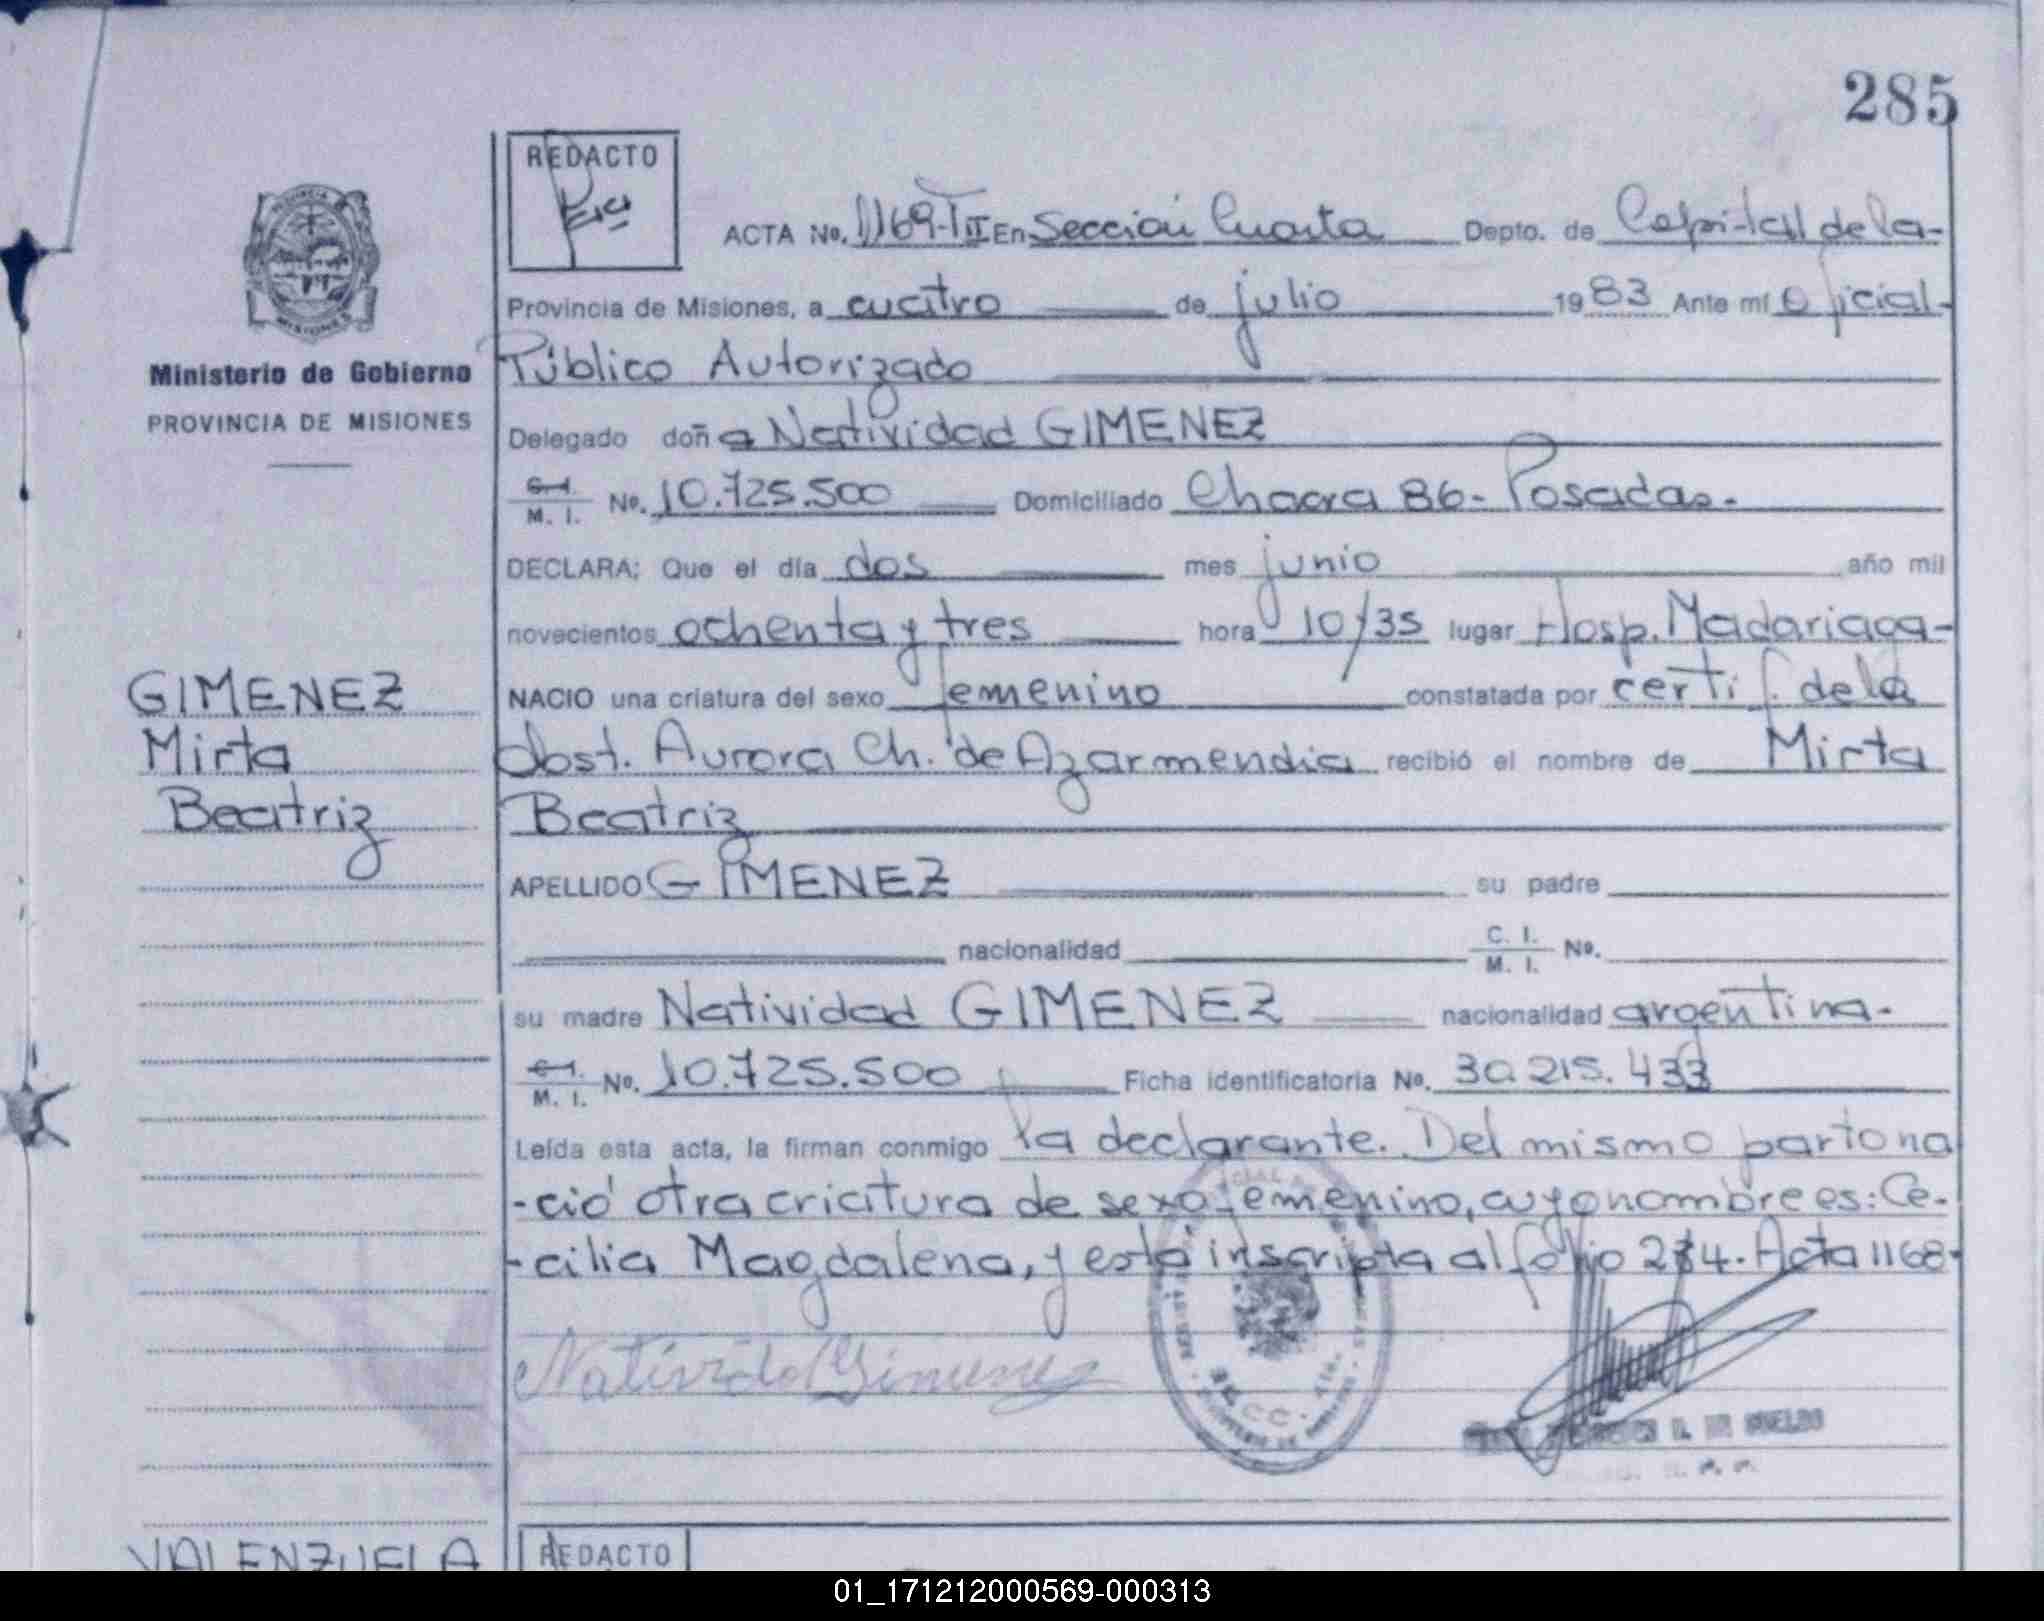 285
REDACTO
ACTA No. 1169-TII En Sección Cuarta Depto. de Capital de la-
Provincia de Misiones, a cuatro de julio 1983 Ante mí Oficial-
Público Autorizado
Ministerio de Gobierno
PROVINCIA DE MISIONES
Delegado doña Natividad GIMENEZ
C. I. M. I. No. 10.725.500 Domiciliado Chacra 86- Posadas-
DECLARA: Que el día dos mes junio año mil
novecientos ochenta y tres hora 10/35 lugar Hosp. Madariaga-
NACIO una criatura del sexo femenino constatada por certif. de la
Obst. Aurora Ch. de Azarmendia recibió el nombre de Mirta
Beatriz
GIMENEZ
Mirta
Beatriz
APELLIDO GIMENEZ su padre
nacionalidad C. I. M. I. No.
su madre Natividad GIMENEZ nacionalidad argentina-
C. I. M. I. No. 10.725.500 Ficha identificatoria No. 30.215.433
Leída esta acta, la firman conmigo la declarante. Del mismo parto na
-ció otra criatura de sexo femenino, cuyo nombre es: Ce-
-cilia Magdalena, y esta inscripta al folio 284. Acta 1168-
Natividad Gimenez
VALENZUELA
REDACTO
01_171212000569-000313